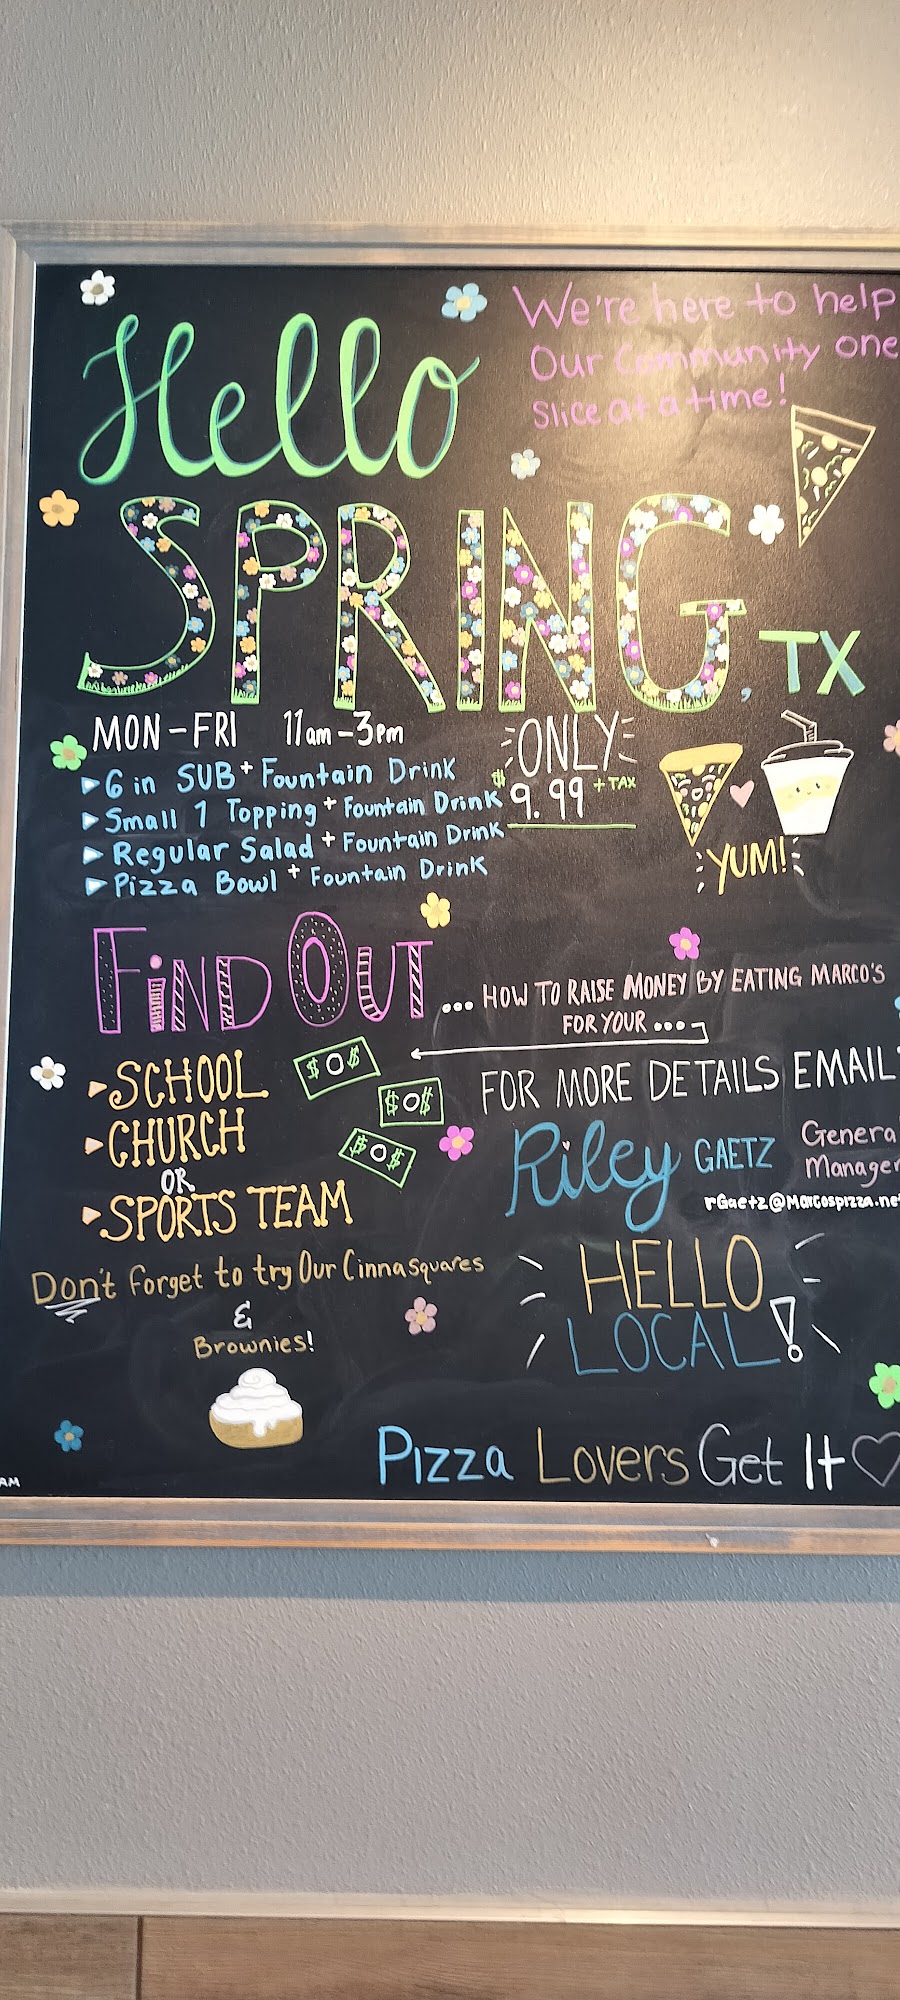 We're here to help
Our Community one
Slice at a time!
Hello
SPRING, TX
MON-FRI 11am-3pm
6 in SUB + Fountain Drink
Small 1 Topping + Fountain Drink
Regular Salad + Fountain Drink
Pizza Bowl + Fountain Drink
ONLY
$9.99 + TAX
YUM!
FIND OUT
... HOW TO RAISE MONEY BY EATING MARCO'S
FOR YOUR ...
SCHOOL
CHURCH
OR
SPORTS TEAM
$0$
$0$
$0$
FOR MORE DETAILS EMAIL
Riley GAETZ
General
Manager
rGaetz@Marcospizza.net
Don't forget to try Our Cinnasquares
&
Brownies!
HELLO
LOCAL!
Pizza Lovers Get It
AM